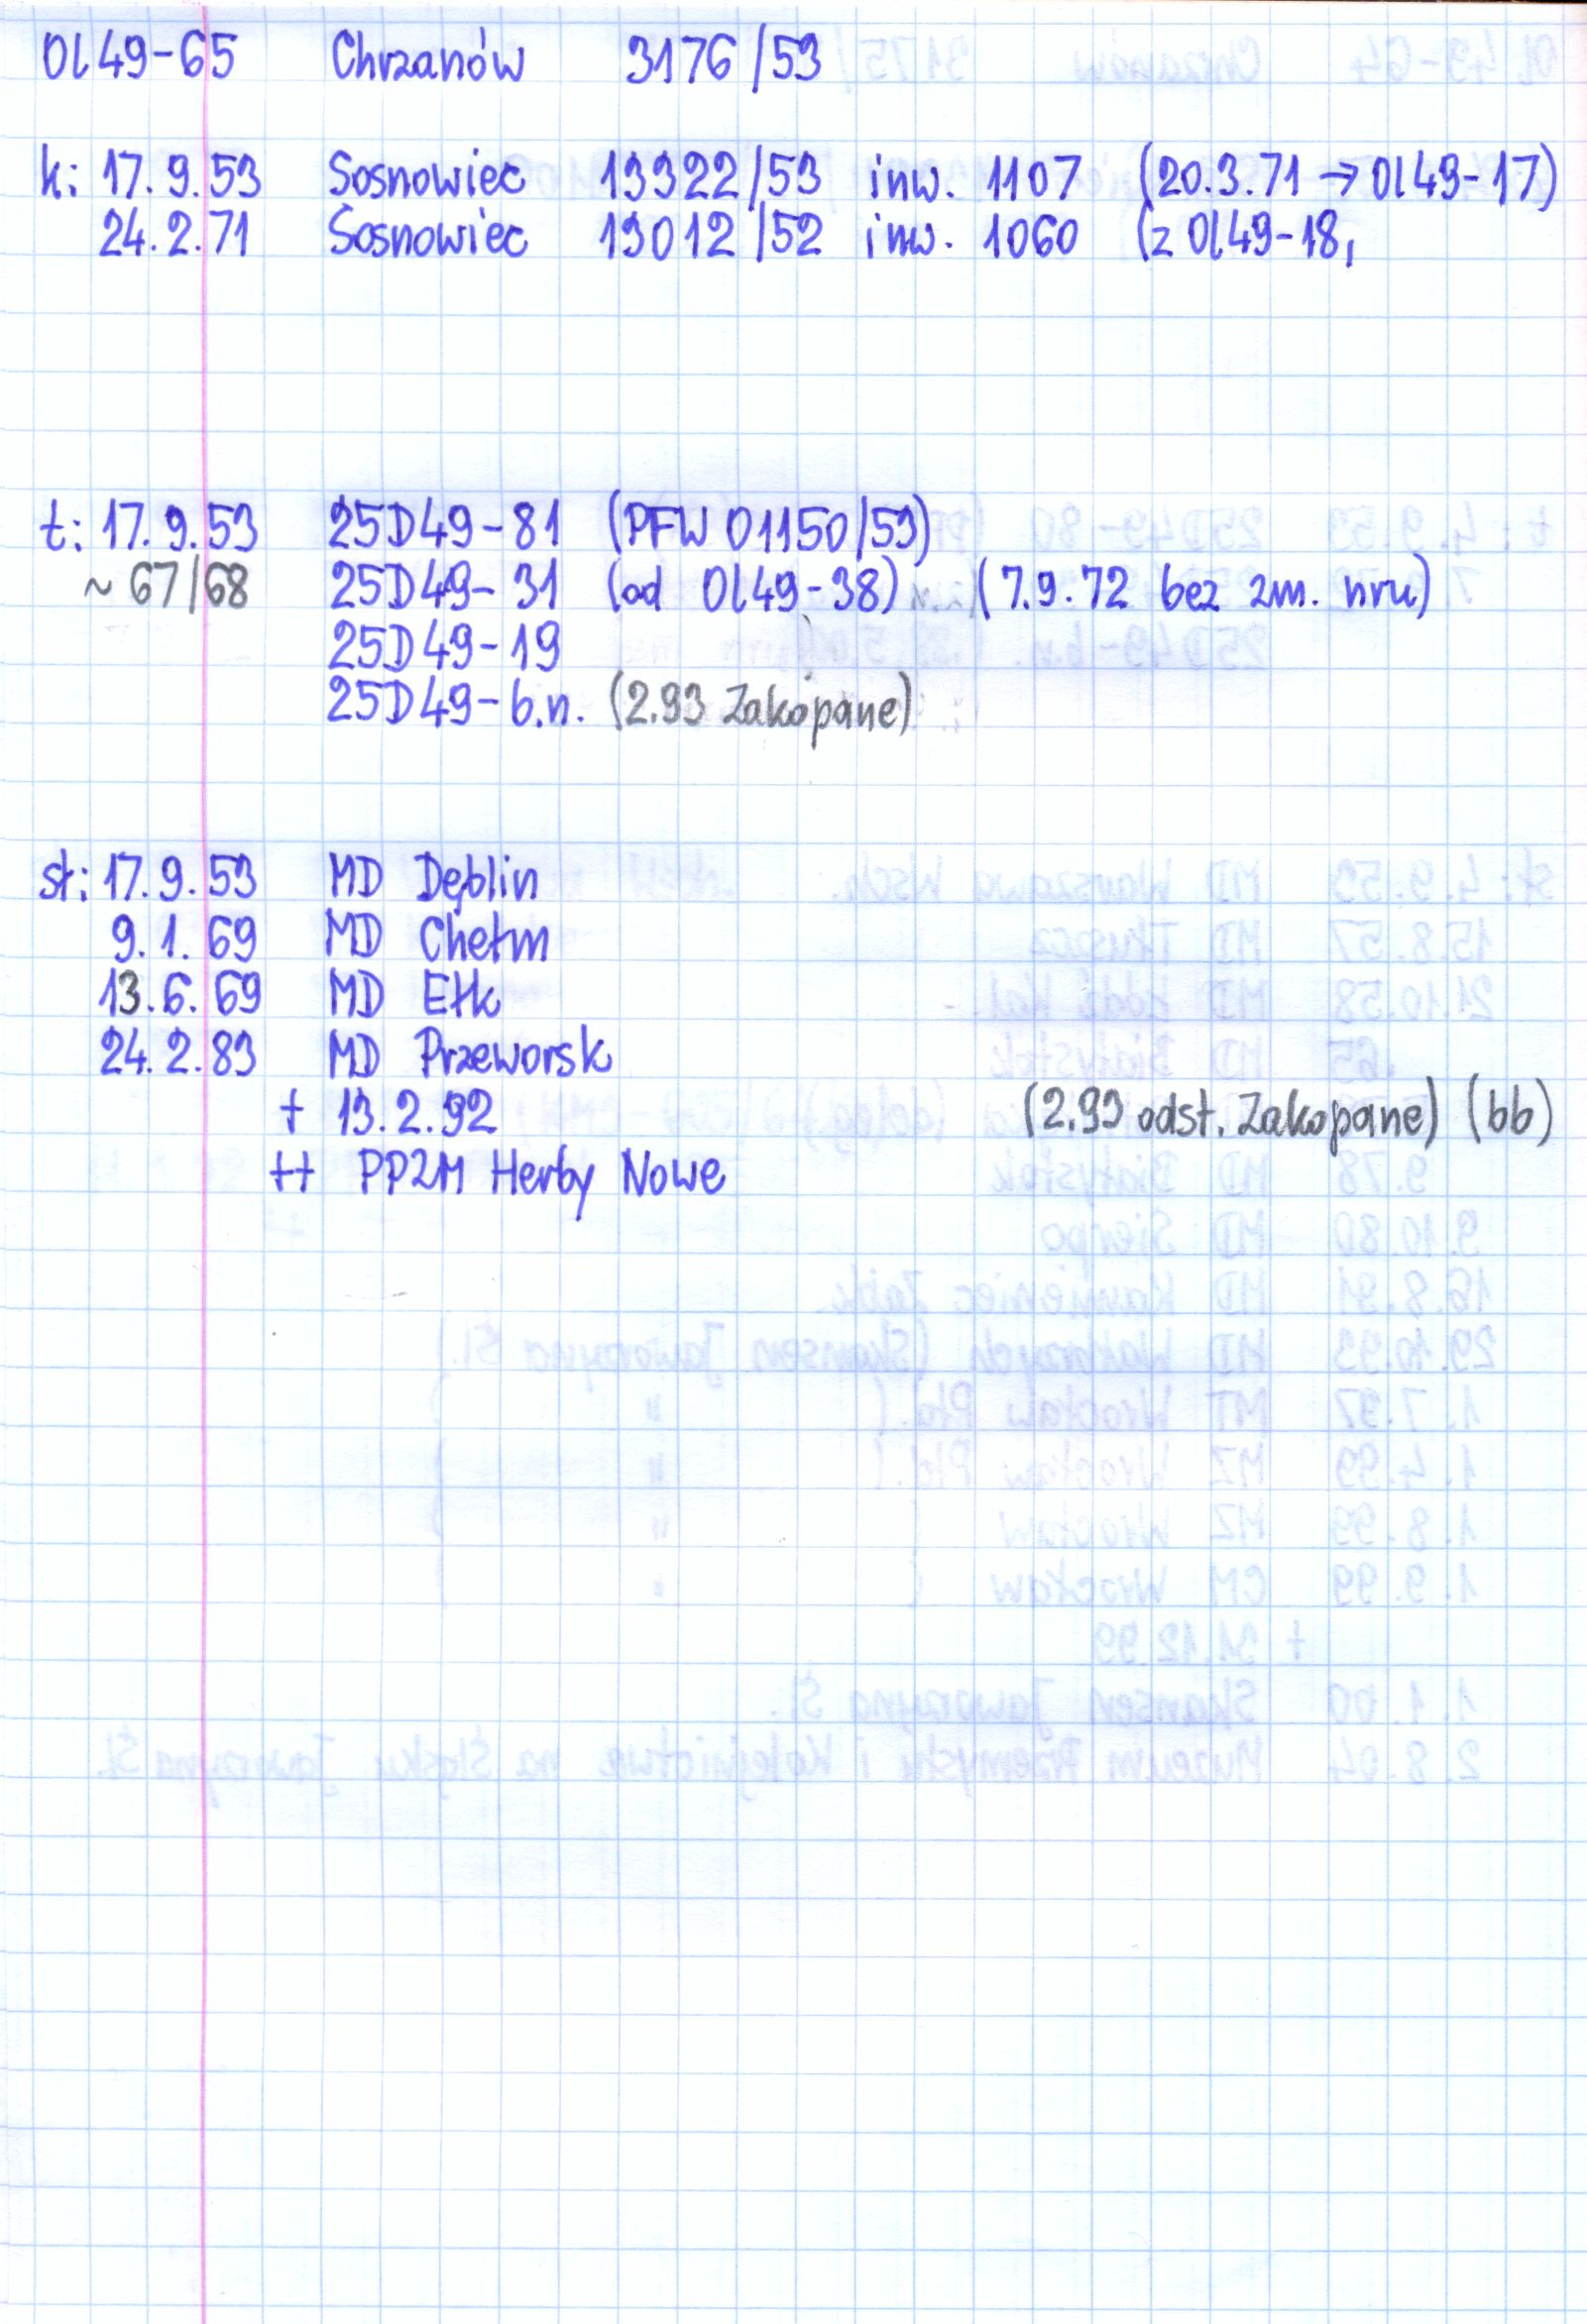 Ol49-65 Chrzanów 3176/53
k: 17.9.53 Sosnowiec 13322/53 inw. 1107 (20.3.71 → Ol49-17)
24.2.71 Sosnowiec 13012/52 inw. 1060 (z Ol49-18,
t: 17.9.53 25D49-81 (PFW 01150/53)
~ 67/68 25D49-31 (od Ol49-38) (7.9.72 bez zm. nru)
25D49-19
25D49-b.n. (2.93 Zakopane)
st: 17.9.53 MD Dęblin
9.1.69 MD Chełm
13.6.69 MD Ełk
24.2.83 MD Przeworsk
+ 13.2.92 (2.93 odst. Zakopane) (bb)
++ PPZM Herby Nowe